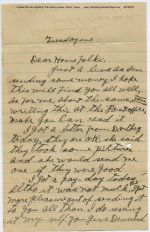 Tuesday eve
Dear Home folks:
Just a line as I am
sending some money, I hope
this will find you all well,
as for me, about the same, am
writing this at the Post office
make you can read it
I got a letter from
today, they are ok, she said
they took some pictures
and she would send me
one if they were good
I got a pay day today
Altho it was not much, I get
more pleasure out of sending it
to you all than I do using
it my self you give